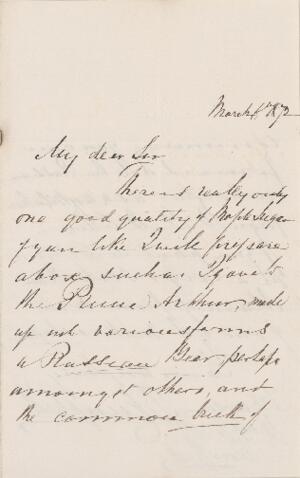 March 8th 1872
My dear Sir
There is really only
one good quality of Maple Sugar
If you like I will prepare
a box such as I gave to
the Prince Arthur, made
up into various forms
a Russian Bear perhaps
amongst others, and
the common brick of